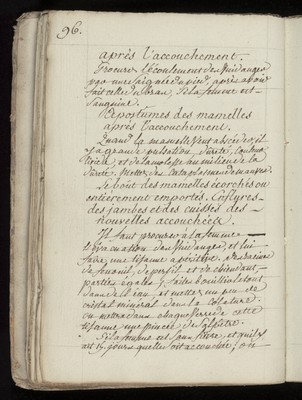 96.
après l'accouchement.
Procurer l'écoulement des vuidanges
par une saignée du pied, après avoir
fait celle du bras, si la femme est
sanguine.
Apostumes des mamelles
après l'accouchement.
Quand la mamelle veut abscéder, il
y a grande pulsation, dureté, douleur
et de la molesse au milieu de la
dureté. Mettez des cataplasmes
Le bout des mamelles écorchés ou
entierement emportés. Enflures
des jambes et des cuisses des
nouvelles accouchées.
Il faut procurer a la femme
l'évacuation des vuidanges, et lui
faire une tisanne apéritive avec racine
de fenouil, de persil et de chiendent,
parties égales; faites bouillir le tout
dans de l'eau, et mettez un peu de
cristal minéral dans la colature.
ou mettre dans chaque verre de cette
tisanne une pincée de salpêtre.
Si la femme est sans fièvre, et qu'il y
ait 15 jours quelle soit accouchée; on